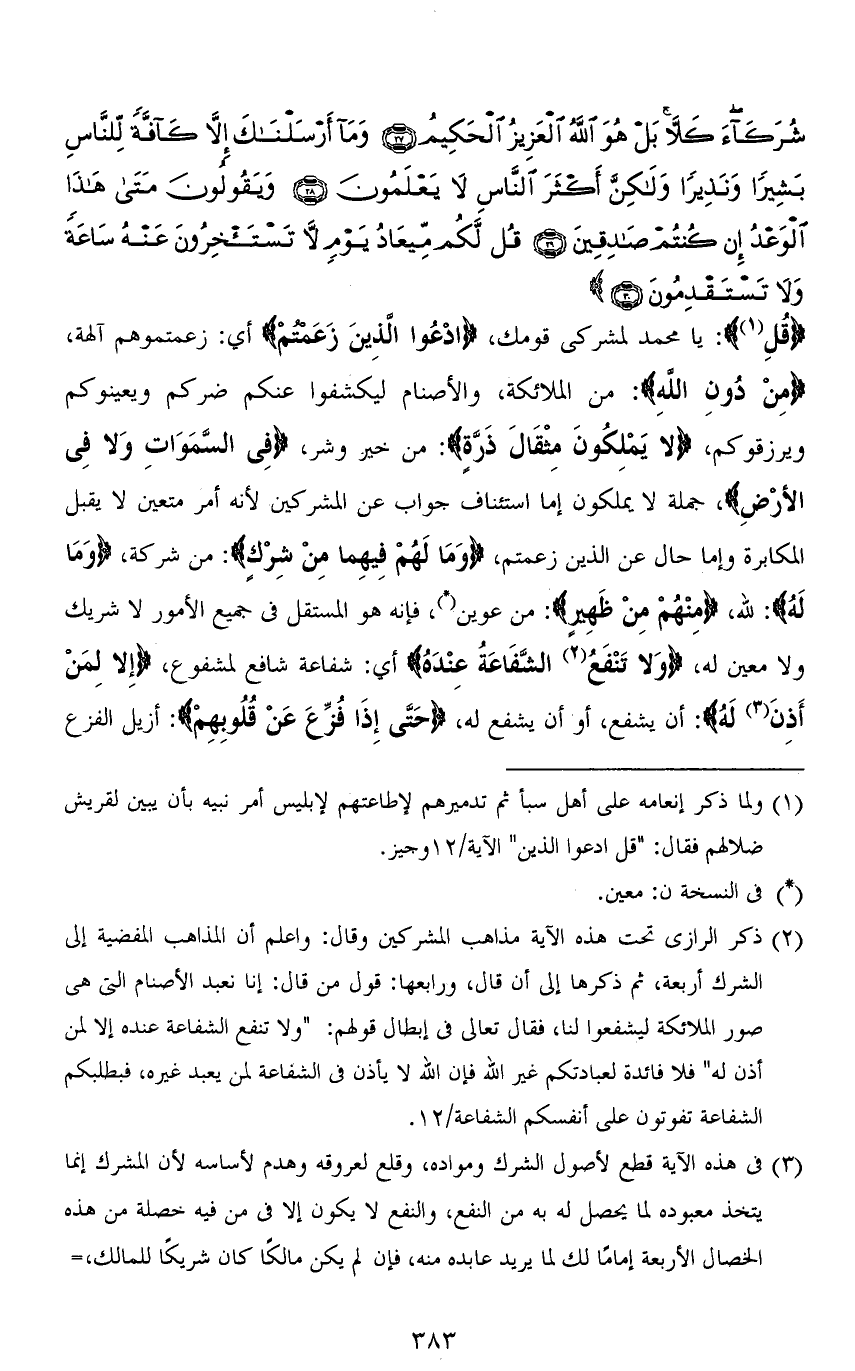 شُرَكَآءَ كَلَّا بَلْ هُوَ ٱللَّهُ ٱلْعَزِيزُ ٱلْحَكِيمُ ٢٧ وَمَآ أَرْسَلْنَٰكَ إِلَّا كَآفَّةً لِّلنَّاسِ
بَشِيرًا وَنَذِيرًا وَلَٰكِنَّ أَكْثَرَ ٱلنَّاسِ لَا يَعْلَمُونَ ٢٨ وَيَقُولُونَ مَتَىٰ هَٰذَا
ٱلْوَعْدُ إِن كُنتُمْ صَٰدِقِينَ ٢٩ قُل لَّكُم مِّيعَادُ يَوْمٍ لَّا تَسْتَـْٔخِرُونَ عَنْهُ سَاعَةً
وَلَا تَسْتَقْدِمُونَ ٣٠ ﴾
﴿قُلِ(١)﴾: يا محمد لمشركى قومك، ﴿ادْعُوا الَّذِينَ زَعَمْتُمْ﴾ أي: زعمتموهم آلهة،
﴿مِنْ دُونِ اللَّهِ﴾: من الملائكة، والأصنام ليكشفوا عنكم ضركم ويعينوكم
ويرزقوكم، ﴿لا يَمْلِكُونَ مِثْقَالَ ذَرَّةٍ﴾: من خير وشر، ﴿فِى السَّمَوَاتِ وَلا فِى
الأَرْضِ﴾، جملة لا يملكون إما استئناف جواب عن المشركين لأنه أمر متعين لا يقبل
المكابرة وإما حال عن الذين زعمتم، ﴿وَمَا لَهُمْ فِيهِما مِنْ شِرْكٍ﴾: من شركة، ﴿وَمَا
لَهُ﴾: لله، ﴿مِنْهُمْ مِنْ ظَهِيرٍ﴾: من عوين(*)، فإنه هو المستقل فى جميع الأمور لا شريك
ولا معين له، ﴿وَلا تَنْفَعُ(٢) الشَّفَاعَةُ عِنْدَهُ﴾ أي: شفاعة شافع لمشفوع، ﴿إِلا لِمَنْ
أَذِنَ(٣) لَهُ﴾: أن يشفع، أو أن يشفع له، ﴿حَتَّى إِذَا فُزِّعَ عَنْ قُلُوبِهِمْ﴾: أزيل الفزع
(١) ولما ذكر إنعامه على أهل سبأ ثم تدميرهم لإطاعتهم لإبليس أمر نبيه بأن يبين لقريش
ضلالهم فقال: "قل ادعوا الذين" الآية/١٢وجيز.
(*) فى النسخة ن: معين.
(٢) ذكر الرازى تحت هذه الآية مذاهب المشركين وقال: واعلم أن المذاهب المفضية إلى
الشرك أربعة، ثم ذكرها إلى أن قال، ورابعها: قول من قال: إنا نعبد الأصنام التى هى
صور الملائكة ليشفعوا لنا، فقال تعالى فى إبطال قولهم: "ولا تنفع الشفاعة عنده إلا لمن
أذن له" فلا فائدة لعبادتكم غير الله فإن الله لا يأذن فى الشفاعة لمن يعبد غيره، فبطلبكم
الشفاعة تفوتون على أنفسكم الشفاعة/١٢.
(٣) فى هذه الآية قطع لأصول الشرك ومواده، وقلع لعروقه وهدم لأساسه لأن المشرك إنما
يتخذ معبوده لما يحصل له به من النفع، والنفع لا يكون إلا فى من فيه خصلة من هذه
الخصال الأربعة إمامًا لك لما يريد عابده منه، فإن لم يكن مالكًا كان شريكًا للمالك،=
٣٨٣